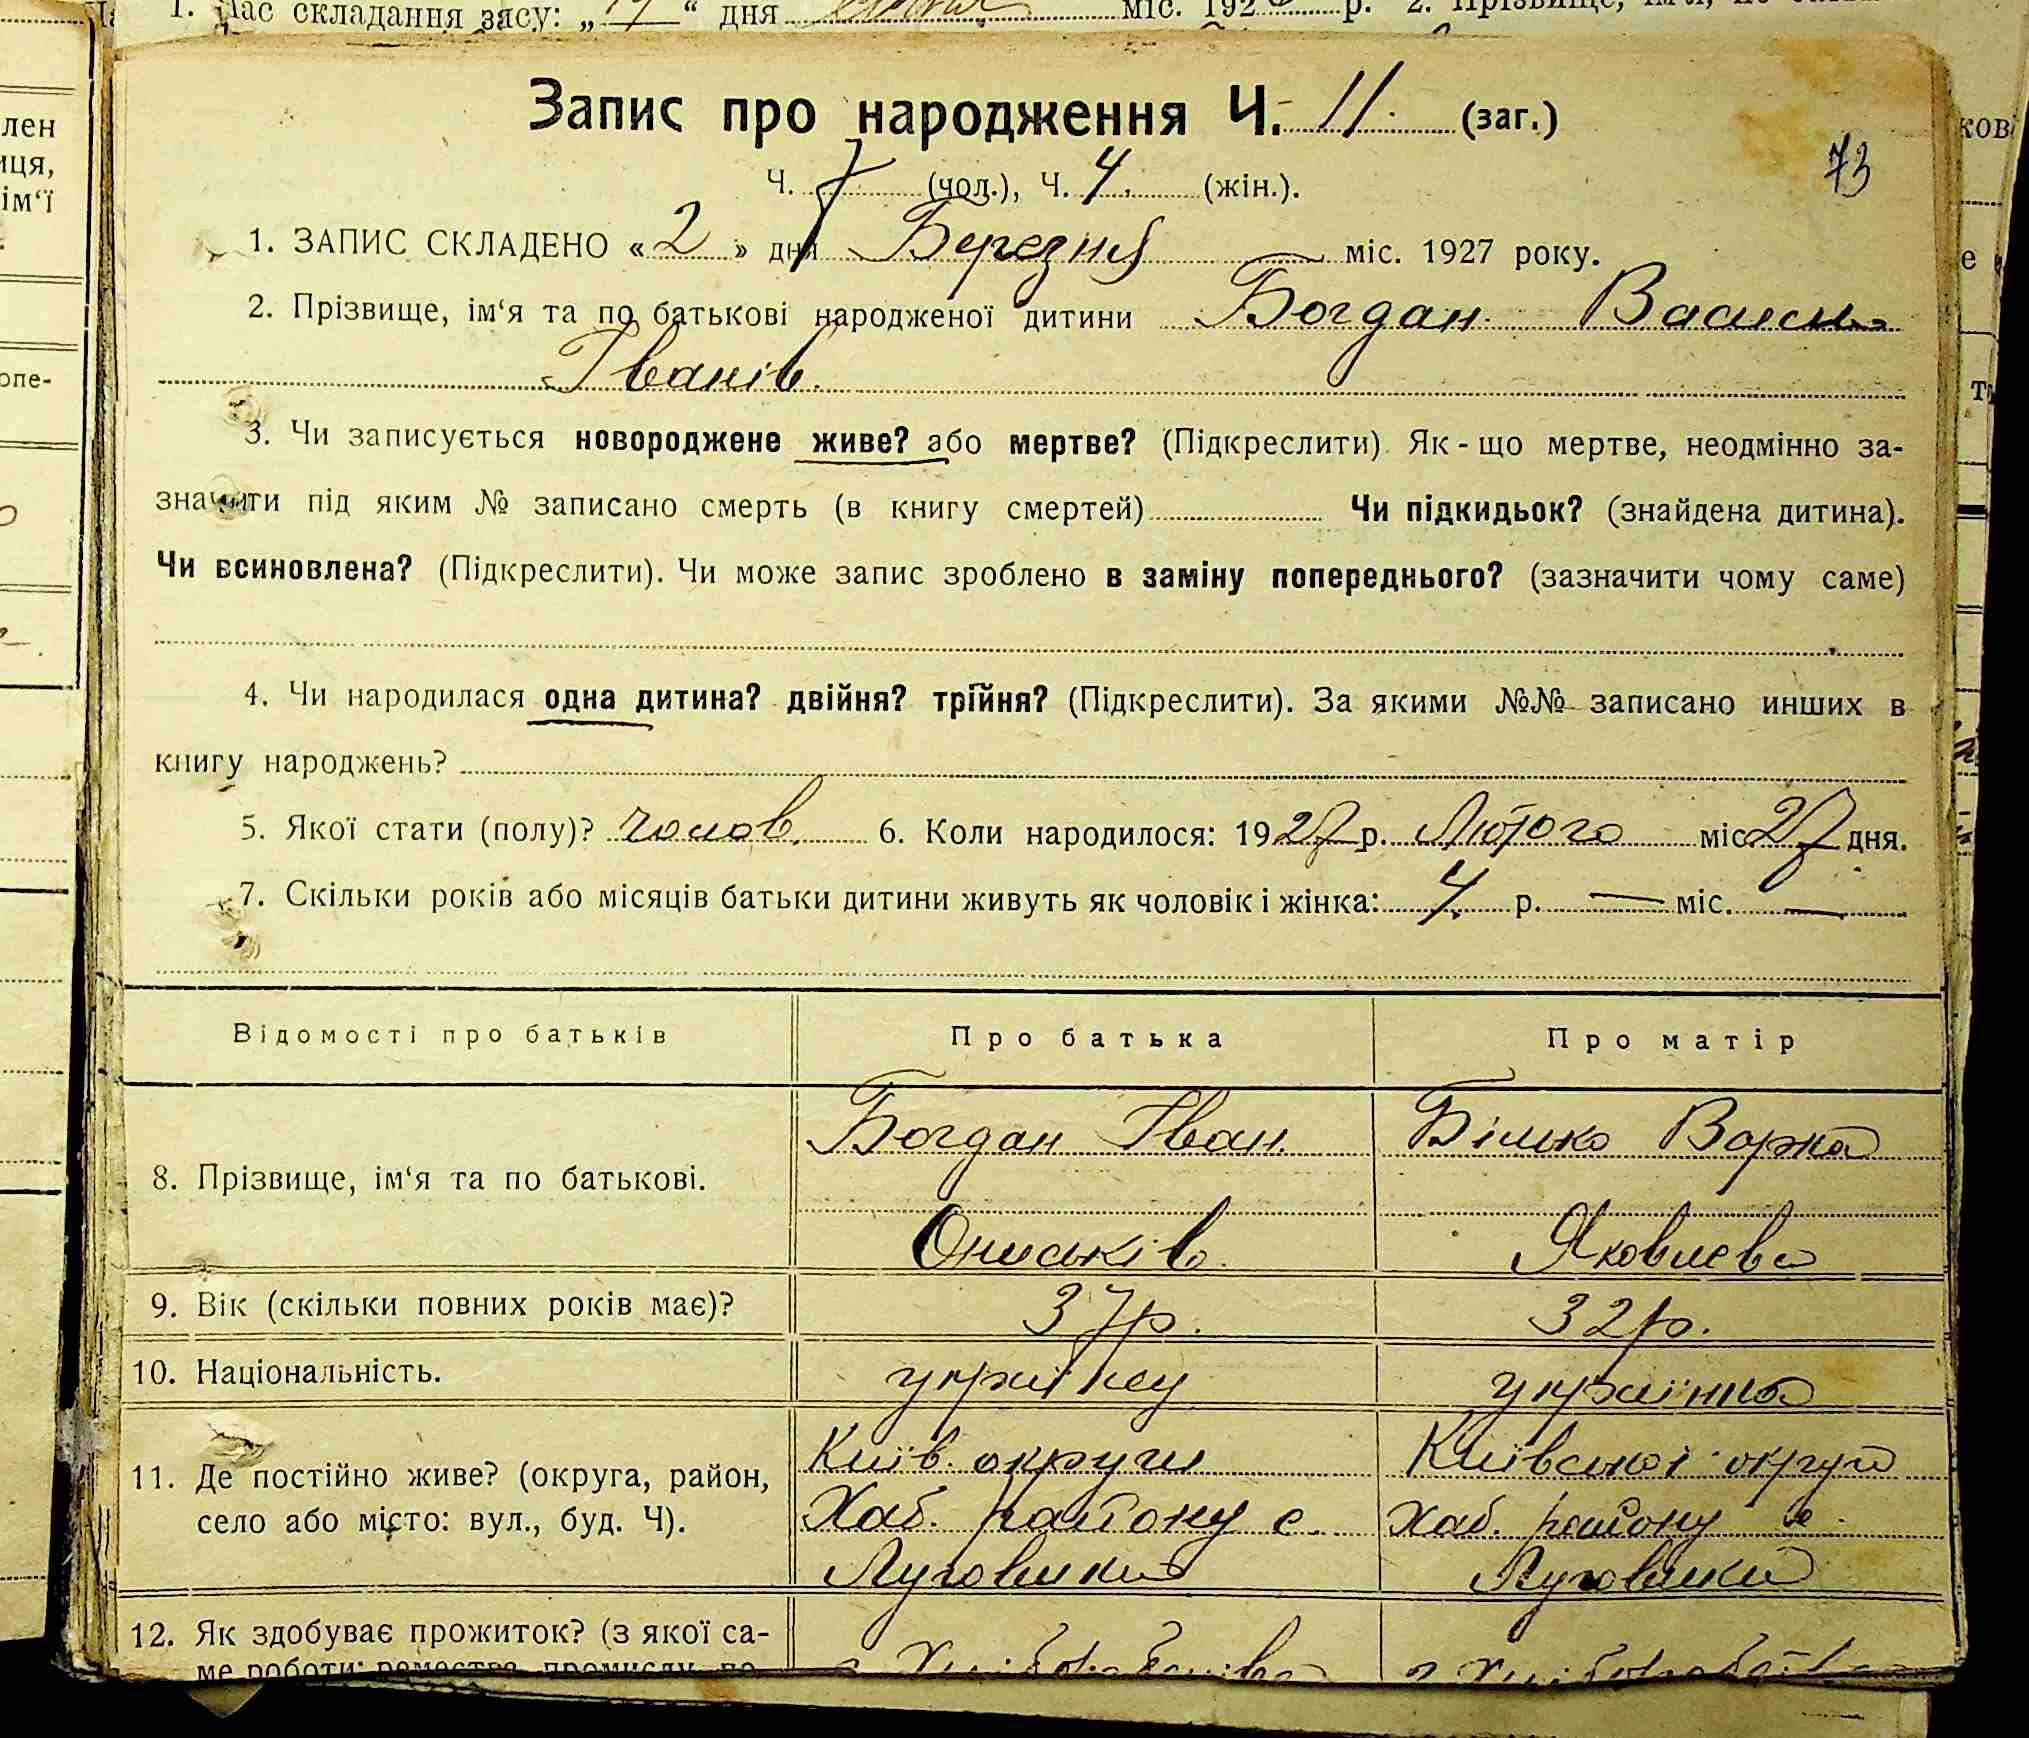 1. Час складання запсу: „19“ дня міс. 192 р. 2. Прізвище, ім'я, по
Запис про народження Ч. 11. (заг.)
73
Ч. 7 (чол.), Ч. 4. (жін.).
1. ЗАПИС СКЛАДЕНО «2» дня Березня міс. 1927 року.
2. Прізвище, ім‘я та по батькові народженої дитини Богдан Василь
Іванів.
3. Чи записується новороджене живе? або мертве? (Підкреслити). Як-що мертве, неодмінно за-
значити під яким № записано смерть (в книгу смертей) Чи підкидьок? (знайдена дитина).
Чи всиновлена? (Підкреслити). Чи може запис зроблено в заміну попереднього? (зазначити чому саме)
4. Чи народилася одна дитина? двійня? трійня? (Підкреслити). За якими №№ записано инших в
книгу народжень?
5. Якої стати (полу)? чолов. 6. Коли народилося: 1927 р. Лютого міс 27 дня.
7. Скільки років або місяців батьки дитини живуть як чоловік і жінка: 4 р. — міс. —
Відомості про батьків Про батька Про матір
8. Прізвище, ім‘я та по батькові. Богдан Іван. Білько Варка
Ониськів. Яковлева
9. Вік (скільки повних років має)? 37 р. 32 р.
10. Національність. українец українка
11. Де постійно живе? (округа, район, Київ. округи Київської округи
село або місто: вул., буд. Ч). Хаб. району с. Хаб. району с.
Луговики Луговики
12. Як здобуває прожиток? (з якої са-
ме роботи: ремества, промислу, по- з Хліборобства з Хліборобства